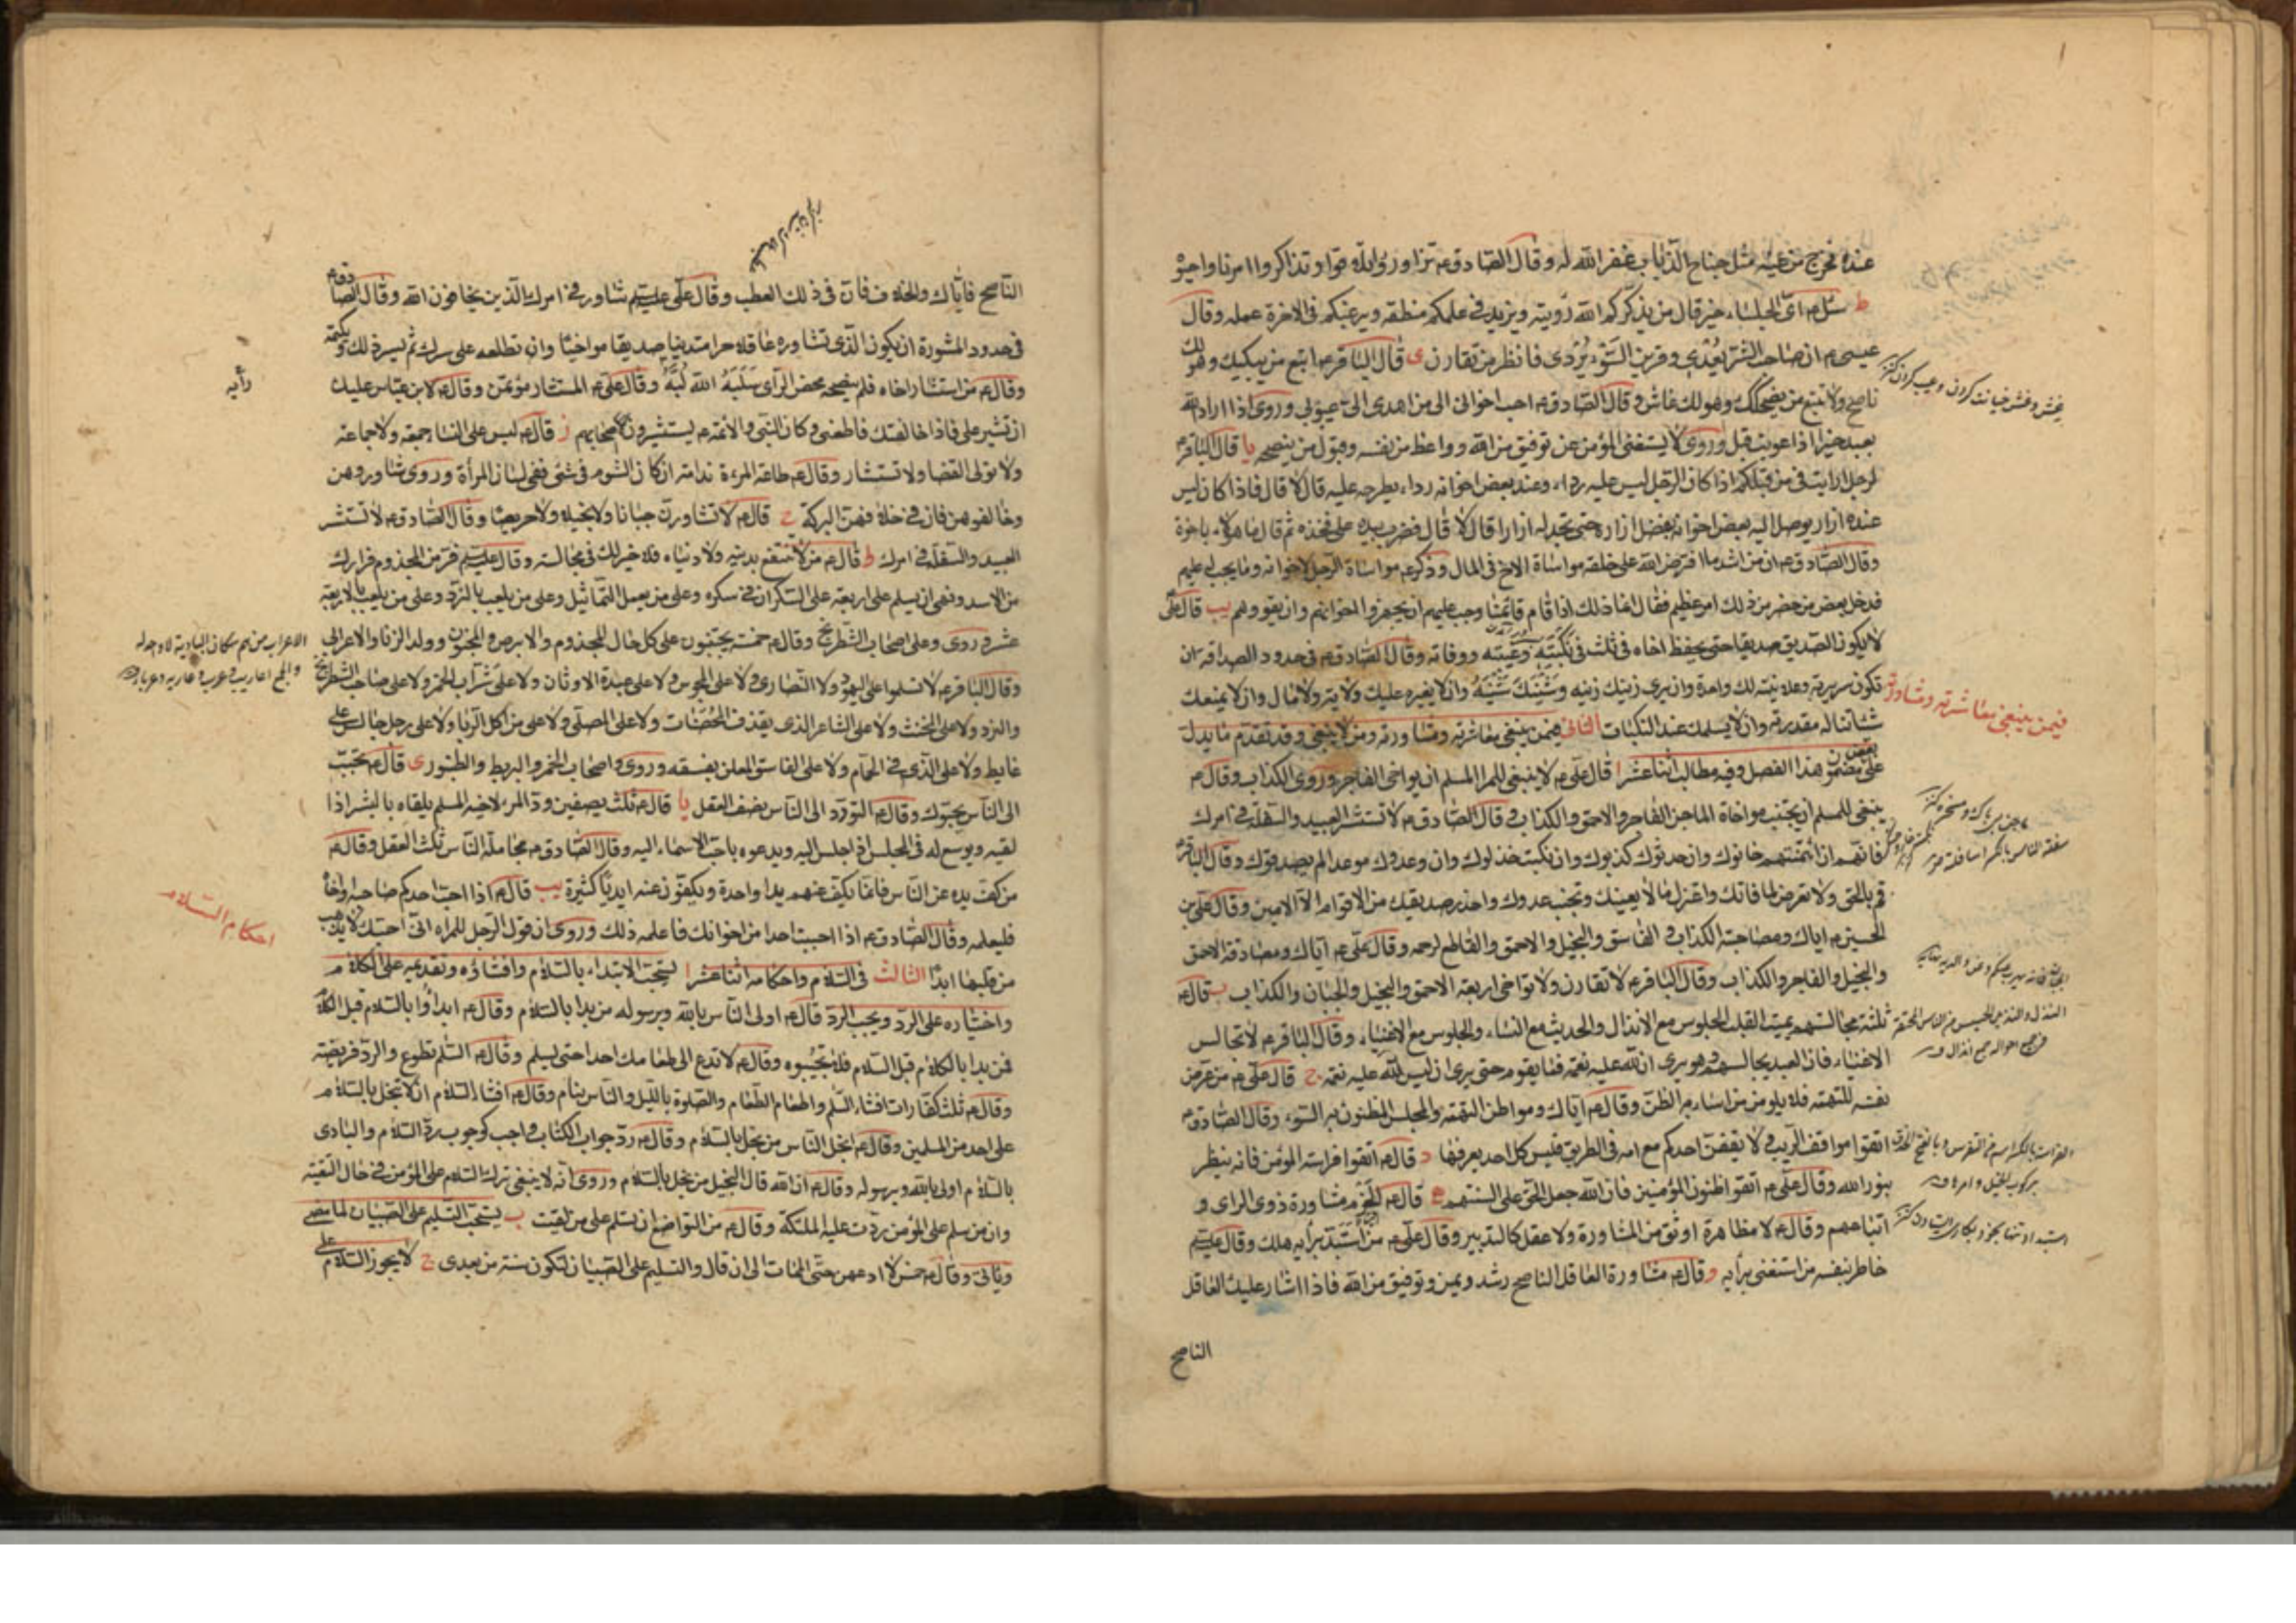 عنده فخرج من عينه مثل جناح الذباب غفر الله له وقال الصادق ع تزاوروا وتلاقوا وتذاكروا امرنا واحيوه
ط سئل ع اى الجلساء خير قال من يذكركم الله رؤيته ويزيد فى علمكم منطقه ويرغبكم فى الاخرة عمله وقال
عيسى ع ان صاحب الشر يعدى وقرين السوء يردى فانظر من تقارن ى قال الباقر ع اتبع من يبكيك وهو لك
ناصح ولا تتبع من يضحكك وهو لك غاش وقال الصادق ع احب اخوانى الى من اهدى الى عيوبى وروى اذا اراد الله
بعبد خيرا اذا عوتب قبل وروى لا يستغنى المؤمن عن توفيق من الله وواعظ من نفسه وقبول من ينصحه يا قال الباقر ع
لرجل ارايت فى من قبلكم اذا كان الرجل ليس عليه رداء وعند بعض اخوانه رداء يطرحه عليه قال لا قال فاذا كان ليس
عنده ازار يوصل اليه بعض اخوانه بفضل ازاره حتى يجد له ازارا قال لا قال فضرب بيده على فخذه ثم قال ما هؤلاء باخوة
وقال الصادق ع ان من اشد ما افترض الله على خلقه مواساة الاخ فى المال وذكر ع مواساة الرجل لاخوانه وما يجب له عليهم
فدخل بعض من حضر من ذلك امر عظيم فقال انما ذلك اذا قام قائمنا وجب عليهم ان يجهزوا اخوانهم وان يقووهم يب قال على ع
لا يكون الصديق صديقا حتى يحفظ اخاه فى ثلث فى نكبته وغيبته ووفاته وقال الصادق ع فى حدود الصداقه ان
تكون سريرته وعلانيته لك واحدة وان يرى زينك زينه وشينك شينه وان لا يغيره عليك ولاية ولا مال وان لا يمنعك
شيئا تناله مقدرته وان لا يسلمك عند النكبات الثانى فيمن ينبغى معاشرته ومشاورته ومن لا ينبغى وقد تقدم ما يدل
على بعض مضمون هذا الفصل وفيه مطالب اثنا عشر ا قال على ع لا ينبغى للمرء المسلم ان يواخى الفاجر وروى الكذاب وقال ع
ينبغى للمسلم ان يجتنب مواخاة الماجن الفاجر والاحمق والكذاب وقال الصادق ع لا تستشر العبيد والسفلة فى امرك
فانهم ان ائتمنتهم خانوك وان حدثوك كذبوك وان نكبت خذلوك وان وعدوك موعدا لم يصدقوك وقال الباقر ع
قم بالحق ولا تعرض لما فاتك واعتزل ما لا يعنيك وتجنب عدوك واحذر صديقك من الاقوام الا الامين وقال على بن
الحسين ع اياك ومصاحبة الكذاب والفاسق والبخيل والاحمق والقاطع لرحمه وقال على ع اياك ومصادقة الاحمق
والبخيل والفاجر والكذاب وقال الباقر ع لا تقارن ولا تواخى اربعة الاحمق والبخيل والجبان والكذاب ب قال ع
ثلثة مجالستهم يميت القلب الجلوس مع الانذال والحديث مع النساء والجلوس مع الاغنياء وقال الباقر ع لا تجالس
الاغنياء فان العبد يجالسهم وهو يرى ان لله عليه نعمة فما يقوم حتى يرى ان ليس لله عليه نعمة ج قال على ع من عرض
نفسه للتهمة فلا يلومن من اساء به الظن وقال ع اياك ومواطن التهمة والمجلس المظنون به السوء وقال الصادق ع
اتقوا مواقف الريب ولا يقفن احدكم مع امه فى الطريق فليس كل احد يعرفها د قال ع اتقوا فراسة المؤمن فانه ينظر
بنور الله وقال على ع اتقوا ظنون المؤمنين فان الله جعل الحق على السنتهم ه قال ع الحزم مشاورة ذوى الراى و
اتباعهم وقال ع لا مظاهرة اوثق من المشاورة ولا عقل كالتدبير وقال على ع من استبد برأيه هلك وقال عليه السلم
خاطر بنفسه من استغنى برأيه و قال ع مشاورة العاقل الناصح رشد ويمن وتوفيق من الله فاذا اشار عليك العاقل
الناصح
فيمن ينبغى معاشرته ومشاورته
الناصح فاياك والخلاف فان فى ذلك العطب وقال على عليه السلم شاور فى امرك الذين يخافون الله وقال الصادق ع
فى حدود المشورة ان يكون الذى تشاوره عاقلا حرا متدينا صديقا مواخيا وان تطلعه على سرك ثم يسر ذلك ويكتمه
وقال ع من استشار اخاه فلم ينصحه محض الرأى سلبه الله لبه وقال على ع المستشار مؤتمن وقال ع لابن عباس عليك
رأيه
ان تشير على فاذا خالفتك فاطعنى وكان النبى والائمه ع يستشيرون اصحابهم ز قال ع ليس على النساء جمعة ولا جماعة
ولا تولى القضا ولا تستشار وقال ع طاعة المرءة ندامة ان كان الشوم فى شئ ففى لسان المرأة وروى شاوروهن
وخالفوهن فان فى خلافهن البركة ح قال ع لا تشاورن جبانا ولا بخيلا ولا حريصا وقال الصادق ع لا تستشر
العبيد والسفلة فى امرك ط قال ع من لا تنتفع بدينه ولا دنياه فلا خير لك فى مجالسته وقال عليه السلم فر من المجذوم فرارك
من الاسد ونهى ان يسلم على اربعة على السكران فى سكره وعلى من يعمل التماثيل وعلى من يلعب بالنرد وعلى من يلعب بالاربعة
عشر وروى وعلى اصحاب الشطرنج وقال ع خمسة يجتنبون على كل حال المجذوم والابرص والمجنون وولد الزنا والاعرابى
وقال الباقر ع لا تسلموا على اليهود ولا النصارى ولا على المجوس ولا على عبدة الاوثان ولا على شراب الخمر ولا على صاحب الشطرنج
والنرد ولا على المخنث ولا على الشاعر الذى يقذف المحصنات ولا على المصلى ولا على من اكل الربا ولا على رجل جالس على
غايط ولا على الذى فى الحمام ولا على الفاسق المعلن بفسقه وروى واصحاب الخمر والبربط والطنبور ى قال ع تحبب
الى الناس يحبوك وقال ع التودد الى الناس نصف العقل يا قال ع ثلث يصفين ود المرء لاخيه المسلم يلقاه بالبشر اذا
لقيه ويوسع له فى المجلس اذا جلس اليه ويدعوه باحب الاسماء اليه وقال الصادق ع مجاملة الناس ثلث العقل وقال ع
من كف يده عن الناس فانما يكف عنهم يدا واحدة ويكفون عنه ايديا كثيرة يب قال ع اذا احب احدكم صاحبه او اخاه
فليعلمه وقال الصادق ع اذا احببت احدا من اخوانك فاعلمه ذلك وروى ان قول الرجل للمراه انى احبك لا يذهب
من قلبها ابدا الثالث فى السلام واحكامه اثنا عشر ا يستحب الابتداء بالسلام وافشاؤه وتقديمه على الكلام
واختياره على الرد ويجب الرد قال ع اولى الناس بالله وبرسوله من بدا بالسلام وقال ع ابدأوا بالسلام قبل الكلام
فمن بدا بالكلام قبل السلام فلا تجيبوه وقال ع لا تدع الى طعامك احدا حتى يسلم وقال ع السلم تطوع والرد فريضة
وقال ع ثلث كفارات افشاء السلم واطعام الطعام والصلوة بالليل والناس نيام وقال ع افشاء السلام ان لا تبخل بالسلام
على احد من المسلمين وقال ع ابخل الناس من بخل بالسلام وقال ع رد جواب الكتاب واجب كوجوب رد السلام والبادى
بالسلام اولى بالله وبرسوله وقال ع ان الله قال البخيل من بخل بالسلام وروى انه لا ينبغى ترك السلام على المؤمن فى حال التقية
وان من سلم على المؤمن ردت عليه الملئكة وقال ع من التواضع ان تسلم على من لقيت ب يستحب التسليم على الصبيان لما مضى
وياتى وقال ع خمس لا ادعهن حتى الممات الى ان قال والتسليم على الصبيان لتكون سنة من بعدى ج لا يجوز السلام على
احكام السلام